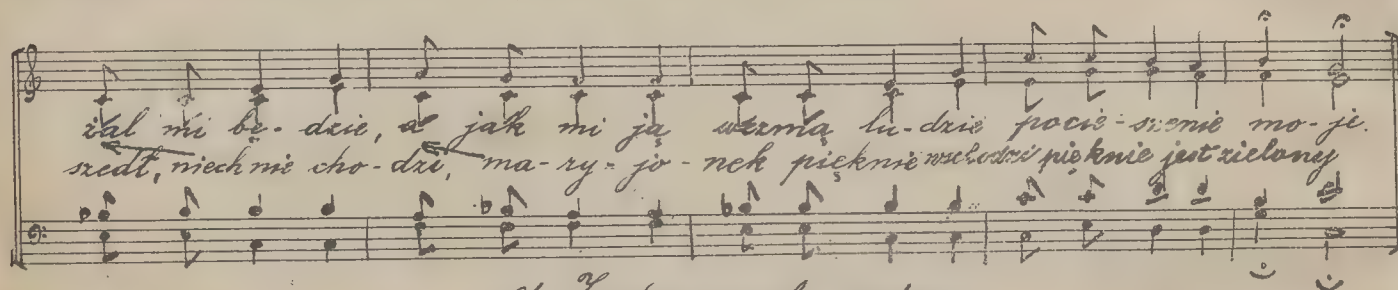 żal mi bę-dzie, a jak mi ją wezmą lu-dzie pocie-szenie mo-je.
szedł, niech mie cho-dzi, ma-ry-jo-nek pięknie wschodzi pięknie jest zielony